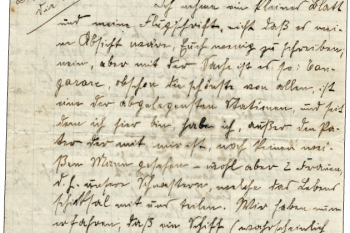 ich nehme ein kleines Blatt
und meine Flugschrift, nicht daß es mei-
ne Absicht wäre, Euch wenig zu schreiben,
nein, aber mit der Sache ist es so:
obschon die schönste von allen, ist
eine der abgelegensten Stationen, und seit
dem ich hier bin, habe ich, außer dem Pa-
ter der mit mir ist, noch keinen wei-
ßen Mann gesehen – wohl aber 2 Frauen,
d. h. unsere Schwestern, welche das Lebens
schicksal mit uns teilen. Wir haben nun
erfahren, daß ein Schiff (wahrscheinlich